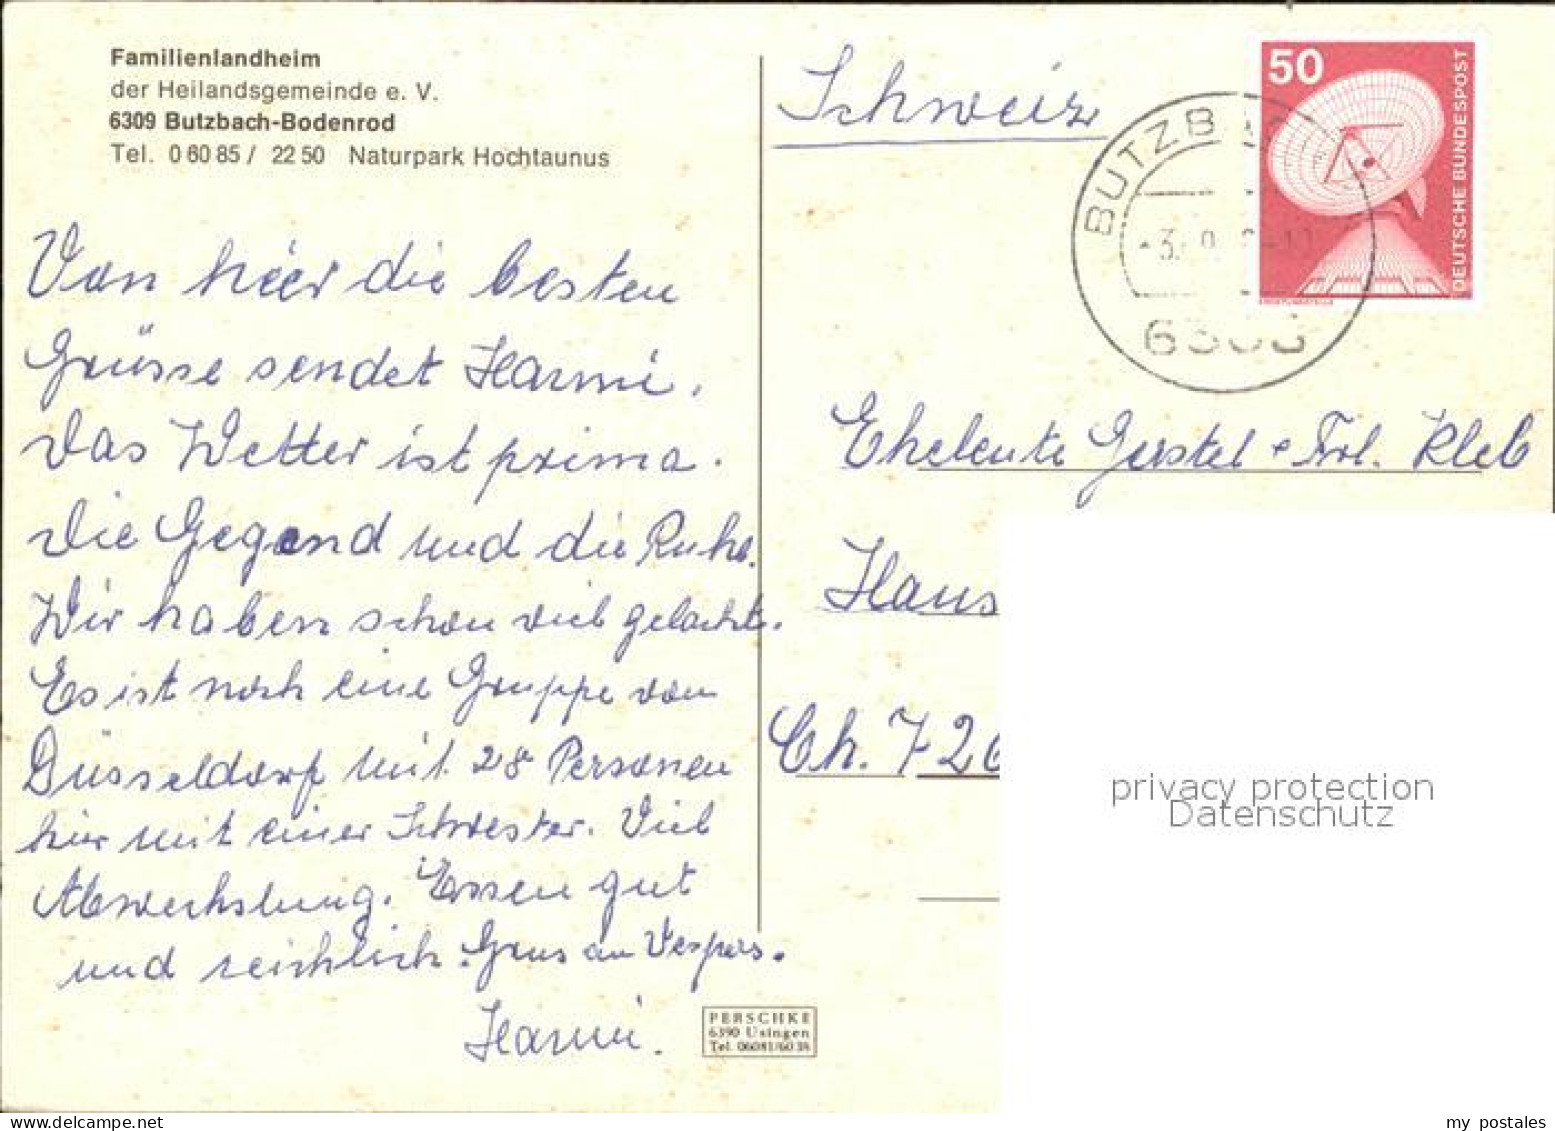 Familienlandheim
der Heilandsgemeinde e. V.
6309 Butzbach-Bodenrod
Tel. 0 60 85 / 22 50 Naturpark Hochtaunus
Von hier die besten
Grüsse sendet Hanni.
Das Wetter ist prima.
Die Gegend und die Ruhe.
Wir haben schon viel gelacht.
Es ist noch eine Gruppe von
Düsseldorf mit 28 Personen
hier mit einer Schwester. Viel
Abwechslung. Essen gut
und reichlich. Grus an Vespers.
Hanni.
PERSCHKE
6390 Usingen
Tel. 06081/60 34
Schweiz
50
DEUTSCHE BUNDESPOST
BUTZB
Eheleute Gerstel + Frl. Kleb
Haus
Ch. 726
privacy protection
Datenschutz
my postales